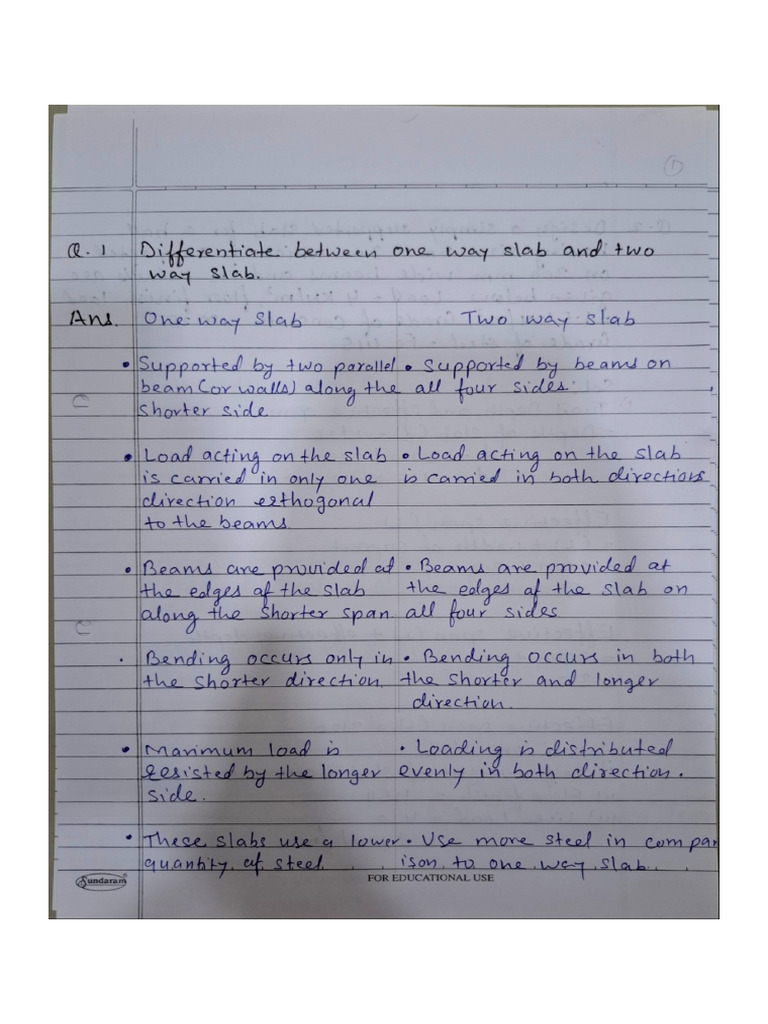 1
Q.1 Differentiate between one way slab and two
way slab.
Ans. One way Slab Two way slab
• Supported by two parallel • Supported by beams on
beam (or walls) along the all four sides.
shorter side.
• Load acting on the slab • Load acting on the slab
is carried in only one is carried in both directions
direction orthogonal
to the beams
• Beams are provided at • Beams are provided at
the edges of the slab the edges of the slab on
along the shorter span all four sides
• Bending occurs only in • Bending occurs in both
the shorter direction the shorter and longer
direction.
• Maximum load is • Loading is distributed
resisted by the longer evenly in both direction.
side.
• These slabs use a lower • Use more steel in compar
quantity of steel ison to one way slab.
Sundaram FOR EDUCATIONAL USE